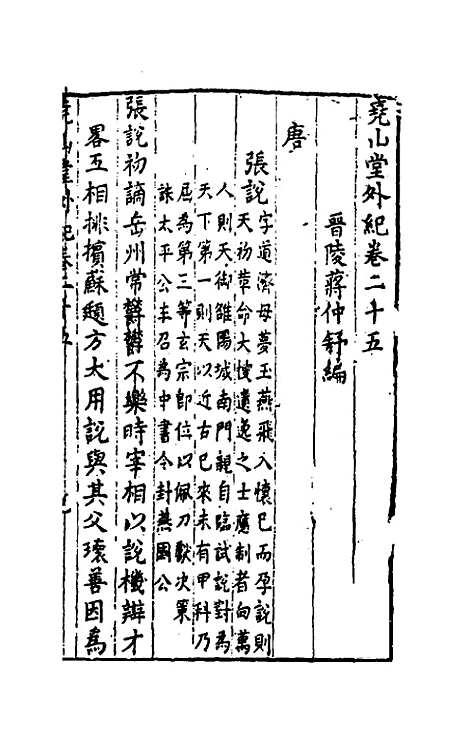 堯山堂外紀卷二十五
晉陵蔣仲舒編
唐
張說字道濟母夢玉燕飛入懷已而孕說則
天初革命大搜遺逸之士應制者向萬
人則天御雒陽城南門親自臨試說對為
天下第一則天以近古已來未有甲科乃
屈為第三等玄宗即位以佩刀獻決策
誅太平公主召為中書令封燕國公
張說初謫岳州常欝欝不樂時宰相以說機辯才
畧互相排擯蘇頲方大用說與其父瓌善因為